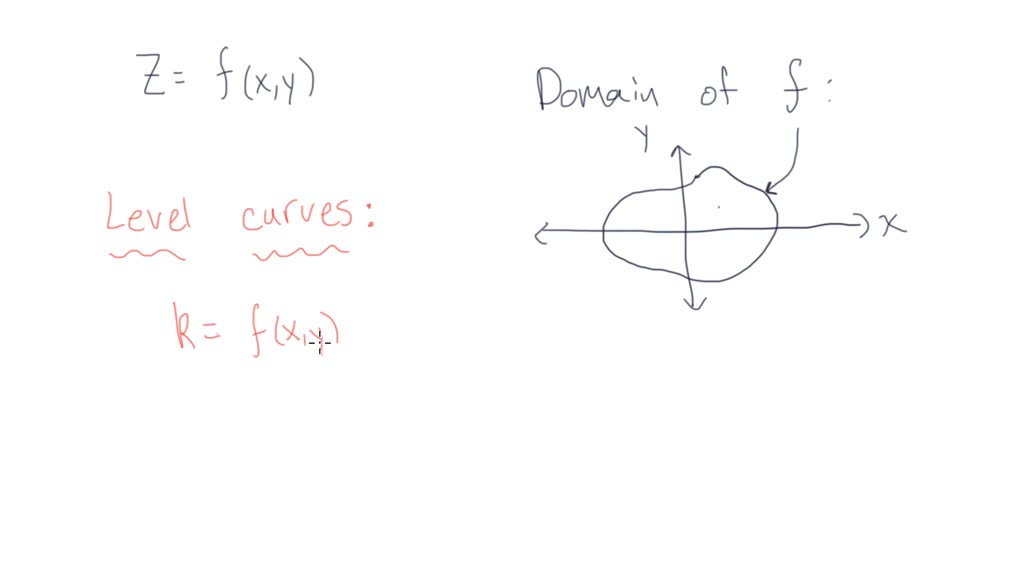 Z = f(x,y)
Level curves:
k = f(x,y)
Domain of f:
y
x